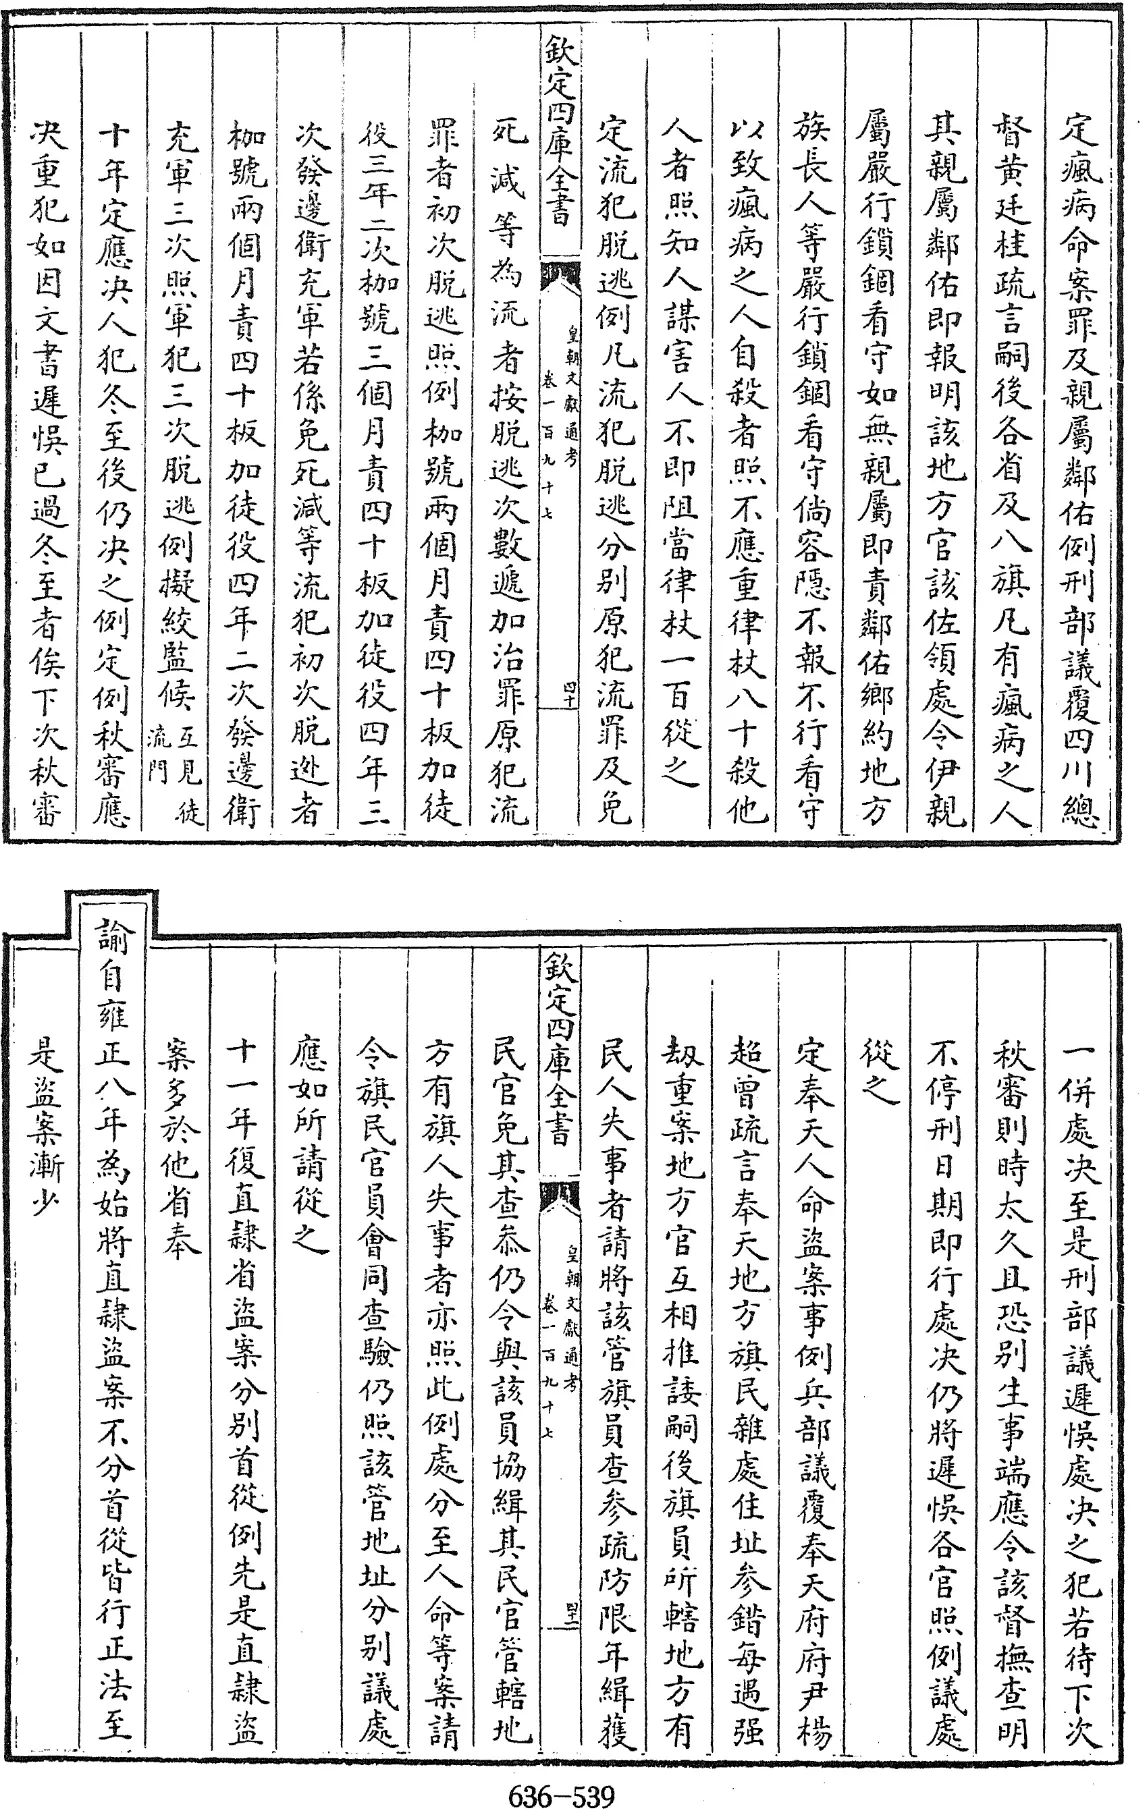 定瘋病命案罪及親屬鄰佑例刑部議覆四川總
督黄廷桂疏言嗣後各省及八旗凡有瘋病之人
其親屬鄰佑即報明該地方官該佐領處令伊親
屬嚴行鎖錮看守如無親屬即責鄰佑鄉約地方
族長人等嚴行鎖錮看守倘容隱不報不行看守
以致瘋病之人自殺者照不應重律杖八十殺他
人者照知人謀害人不即阻當律杖一百從之
定流犯脱逃例凡流犯脱逃分别原犯流罪及免
欽定四庫全書
皇朝文獻通考
卷一百九十七
四十
死減等為流者按脱逃次數遞加治罪原犯流
罪者初次脱逃照例枷號兩個月責四十板加徒
役三年二次枷號三個月責四十板加徒役四年三
次發邊衛充軍若係免死減等流犯初次脱逃者
枷號兩個月責四十板加徒役四年二次發邊衛
充軍三次照軍犯三次脱逃例擬絞監候互見徒
流門
十年定應决人犯冬至後仍决之例定例秋審應
决重犯如因文書遲悞已過冬至者俟下次秋審
一併處决至是刑部議遲悞處决之犯若待下次
秋審則時太久且恐别生事端應令該督撫查明
不停刑日期即行處决仍將遲悞各官照例議處
從之
定奉天人命盜案事例兵部議覆奉天府府尹楊
超曾疏言奉天地方旗民雜處住址參錯每遇强
刼重案地方官互相推諉嗣後旗員所轄地方有
民人失事者請將該管旗員查参疏防限年緝獲
欽定四庫全書
皇朝文獻通考
卷一百九十七
四十一
民官免其查叅仍令與該員協緝其民官管轄地
方有旗人失事者亦照此例處分至人命等案請
令旗民官員會同查驗仍照該管地址分别議處
應如所請從之
十一年復直隸省盜案分别首從例先是直隸盜
案多於他省奉
諭自雍正八年為始將直隸盜案不分首從皆行正法至
是盜案漸少
636-539